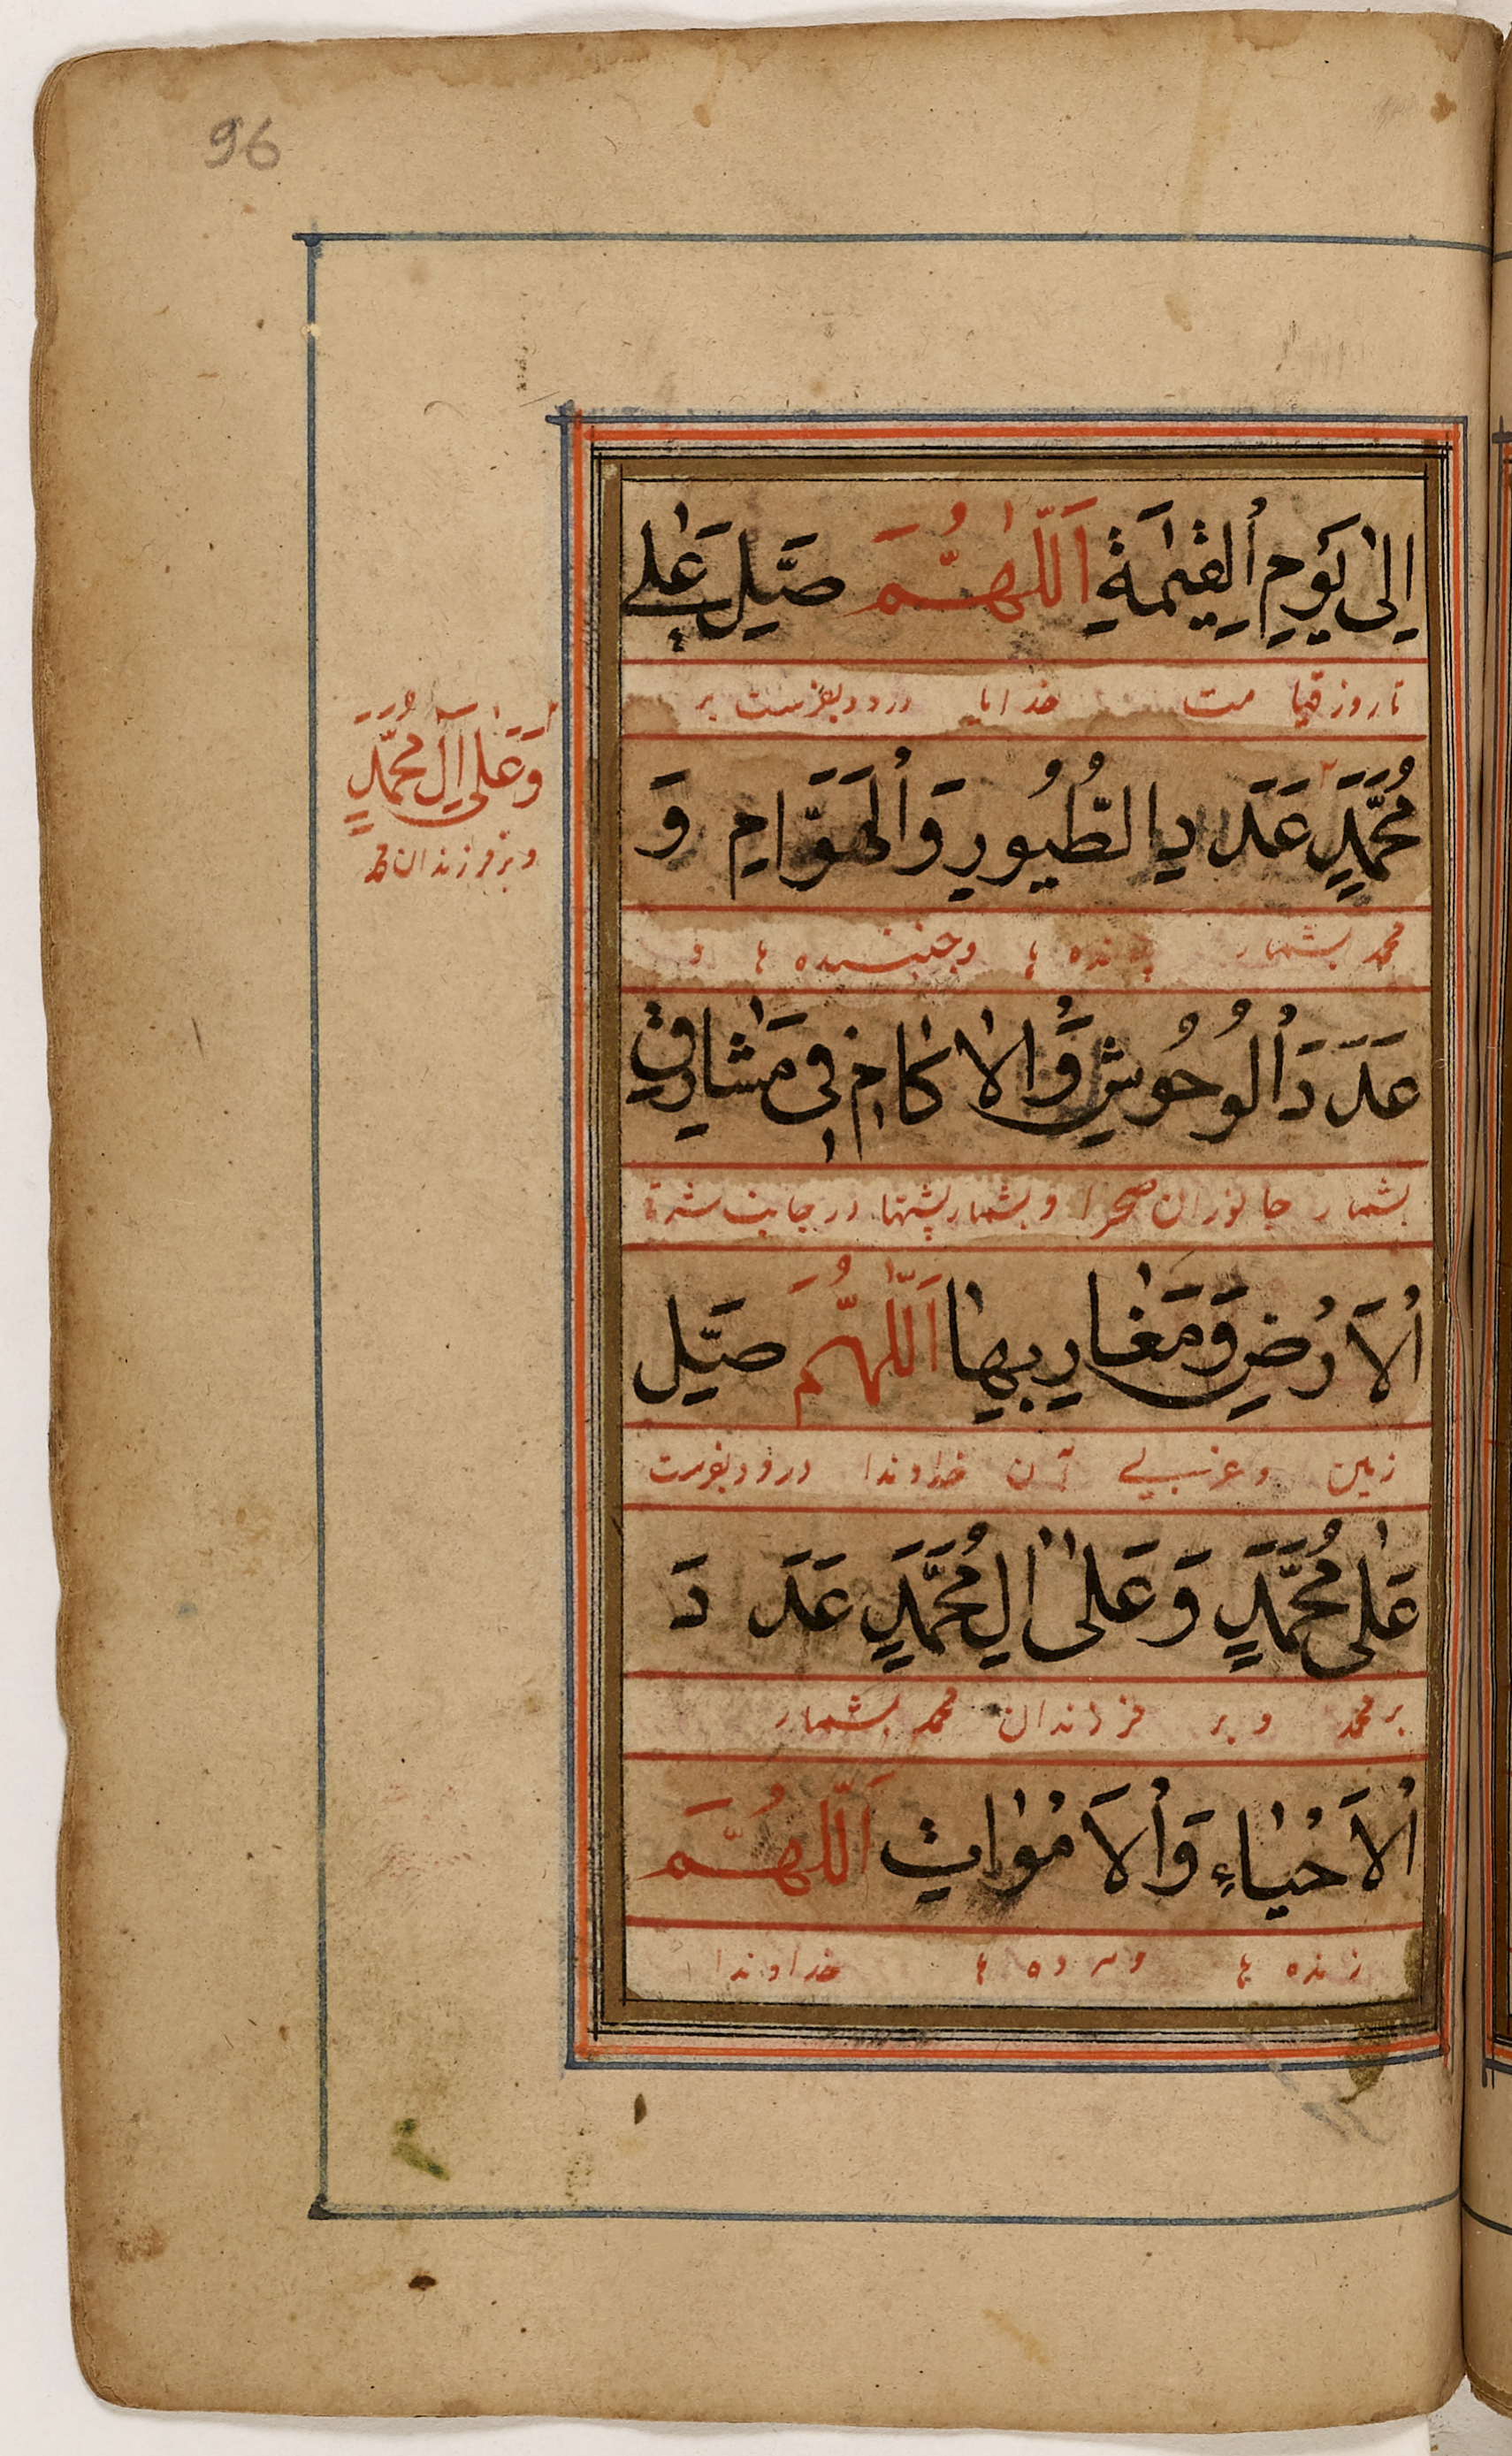 96
اِلىٰ يَوْمِ الْقِيٰمَةِ اَللّٰهُمَّ صَلِّ عَلٰى
تا روز قیا مت خدایا درود بفرست بر
مُحَمَّدٍ عَدَدِ الطُّيُورِ وَالْهَوَّامِ وَ
محمد بشمار پرنده ها وجنبنده ها و
عَدَدَ الْوُحُوشِ وَالْاٰكَامِ فِى مَشَارِقِ
بشمار جانوران صحرا و بشمار پشتها در جانب شرق
الْاَرْضِ وَمَغَارِبِهَا اَللّٰهُمَّ صَلِّ
زمین و غربی آن خداوندا درود بفرست
عَلٰى مُحَمَّدٍ وَ عَلىٰ اٰلِ مُحَمَّدٍ عَدَدَ
بر محمد و بر فرزندان محمد بشمار
الْاَحْيَاءِ وَالْاَمْوَاتِ اَللّٰهُمَّ
زنده ها ومرده ها خداوندا
وَعَلٰى آلِ مُحَمَّدٍ
و بر فرزندان محمد